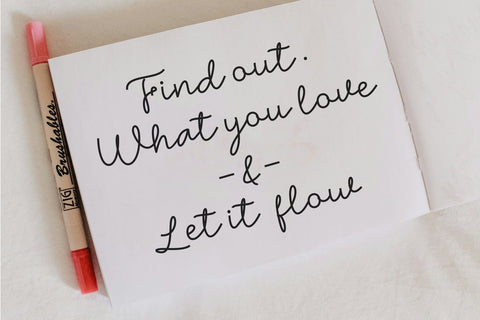 Find out.
What you love
-&-
Let it flow
ZIG Brushables